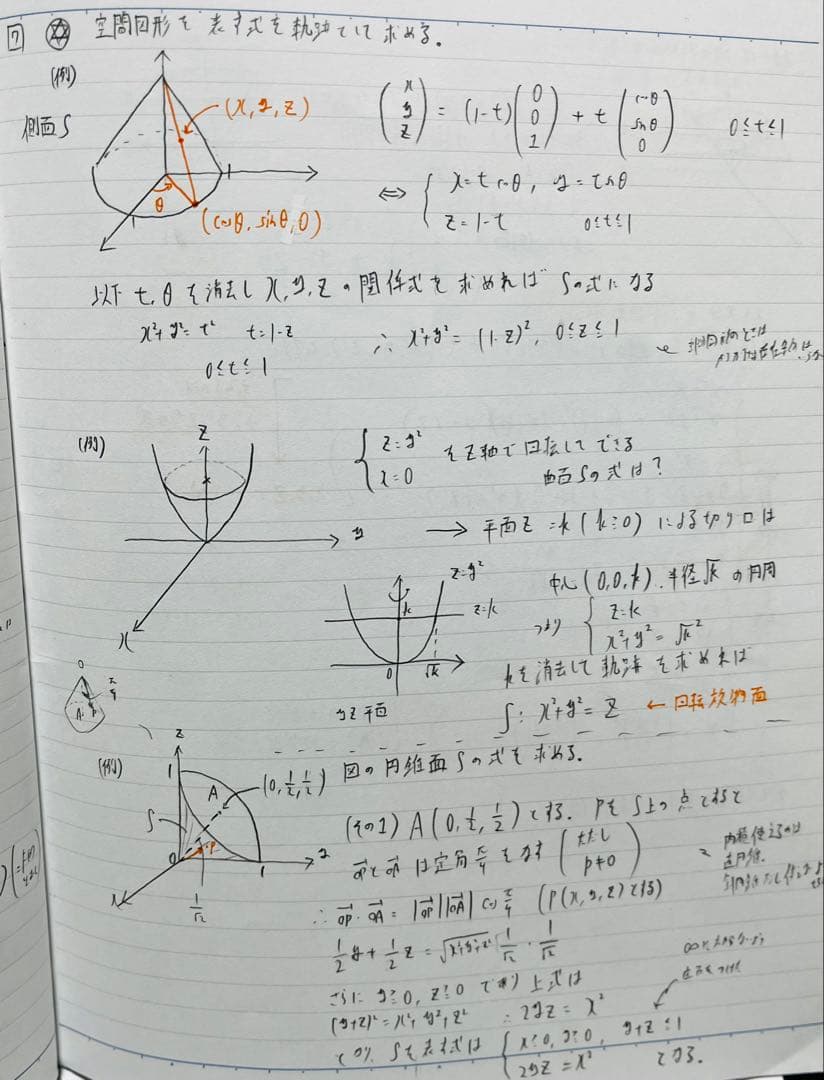 7 空間図形を表す式を軌跡として求める。
(例)
側面S
(x, y, z)
θ
(cosθ, sinθ, 0)
(x y z) = (1-t)(0 0 1) + t(cosθ sinθ 0) 0≦t≦1
⇔ { x=t cosθ, y=t sinθ
z=1-t 0≦t≦1
以下 t, θ を消去し x, y, z の関係式を求めれば Sの式になる
x²+y²=t² t=1-z
0≦t≦1
∴ x²+y²=(1-z)², 0≦z≦1
(例)
z
y
x
{ z=y²
x=0
をz軸で回転してできる
曲面Sの式は?
→ 平面z=k (k≧0) による切り口は
z=y²
z=k
k
0
√k
yz平面
中心(0,0,k), 半径√k の円周
つまり { z=k
x²+y²=√k²
kを消去して軌跡を求めれば
S: x²+y²=z ← 回転放物面
0
π/4
A
P
(例)
z
1
A
(0, 1/2, 1/2)
S
0
P
1
y
x
1/√2
図の円錐面Sの式を求める。
(その1) A(0, 1/2, 1/2)とする。PをS上の点とすると
OPとOAは定角π/4をなす (ただし P≠0)
∴ OP・OA=|OP||OA|cos π/4 (P(x, y, z)とする)
1/2 y + 1/2 z = √x²+y²+z² 1/√2・1/√2
さらに y≧0, z≧0 であり上式は
(y+z)²=x²+y²+z² ∴ 2yz=x²
よって Sを表す式は { x≧0, y≧0, y+z≦1
2yz=x² となる。